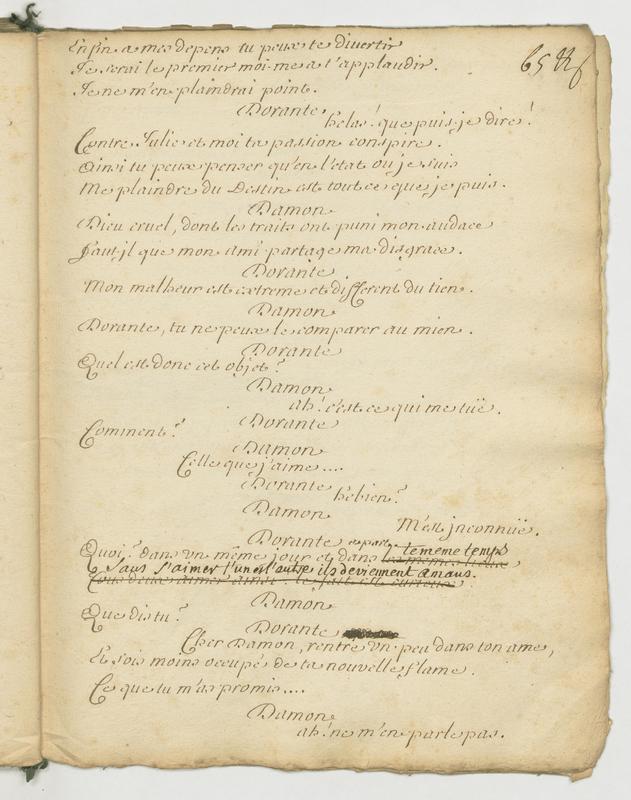 Enfin a mes depens tu peux te divertir
Je serai le premier moi-me a t'applaudir.
Je ne m'en plaindrai point.
65
Dorante
helas! que puis-je dire!
Contre Julie et moi ta passion conspire.
Ainsi tu peux penser qu'en l'etat ou je suis
Me plaindre du Destin est tout ce que je puis.
Damon
Dieu cruel, dont les traits ont puni mon audace
Faut-il que mon ami partage ma disgrace.
Dorante
Mon malheur est extreme et different du tien.
Damon
Dorante, tu ne peux le comparer au mien.
Dorante
Quel est donc cet objet?
Damon
ah! c'est ce qui me tüe.
Dorante
Comment?
Damon
Celle que j'aime....
Dorante
hé bien?
Damon
M'est jnconnüe.
Dorante apart
Quoi? dans vn même jour et dans les mêmes lieux
le meme temps
Sans s'aimer l'un l'autre ils deviennent amans.
Tous deux aimer ainsi le fait est curieux
Damon
Que dis tu?
Dorante
Cher Damon, rentre vn peu dans ton ame,
Et sois moins occupé de ta nouvelle flame.
Ce que tu m'as promis....
Damon
ah! ne m'en parle pas.